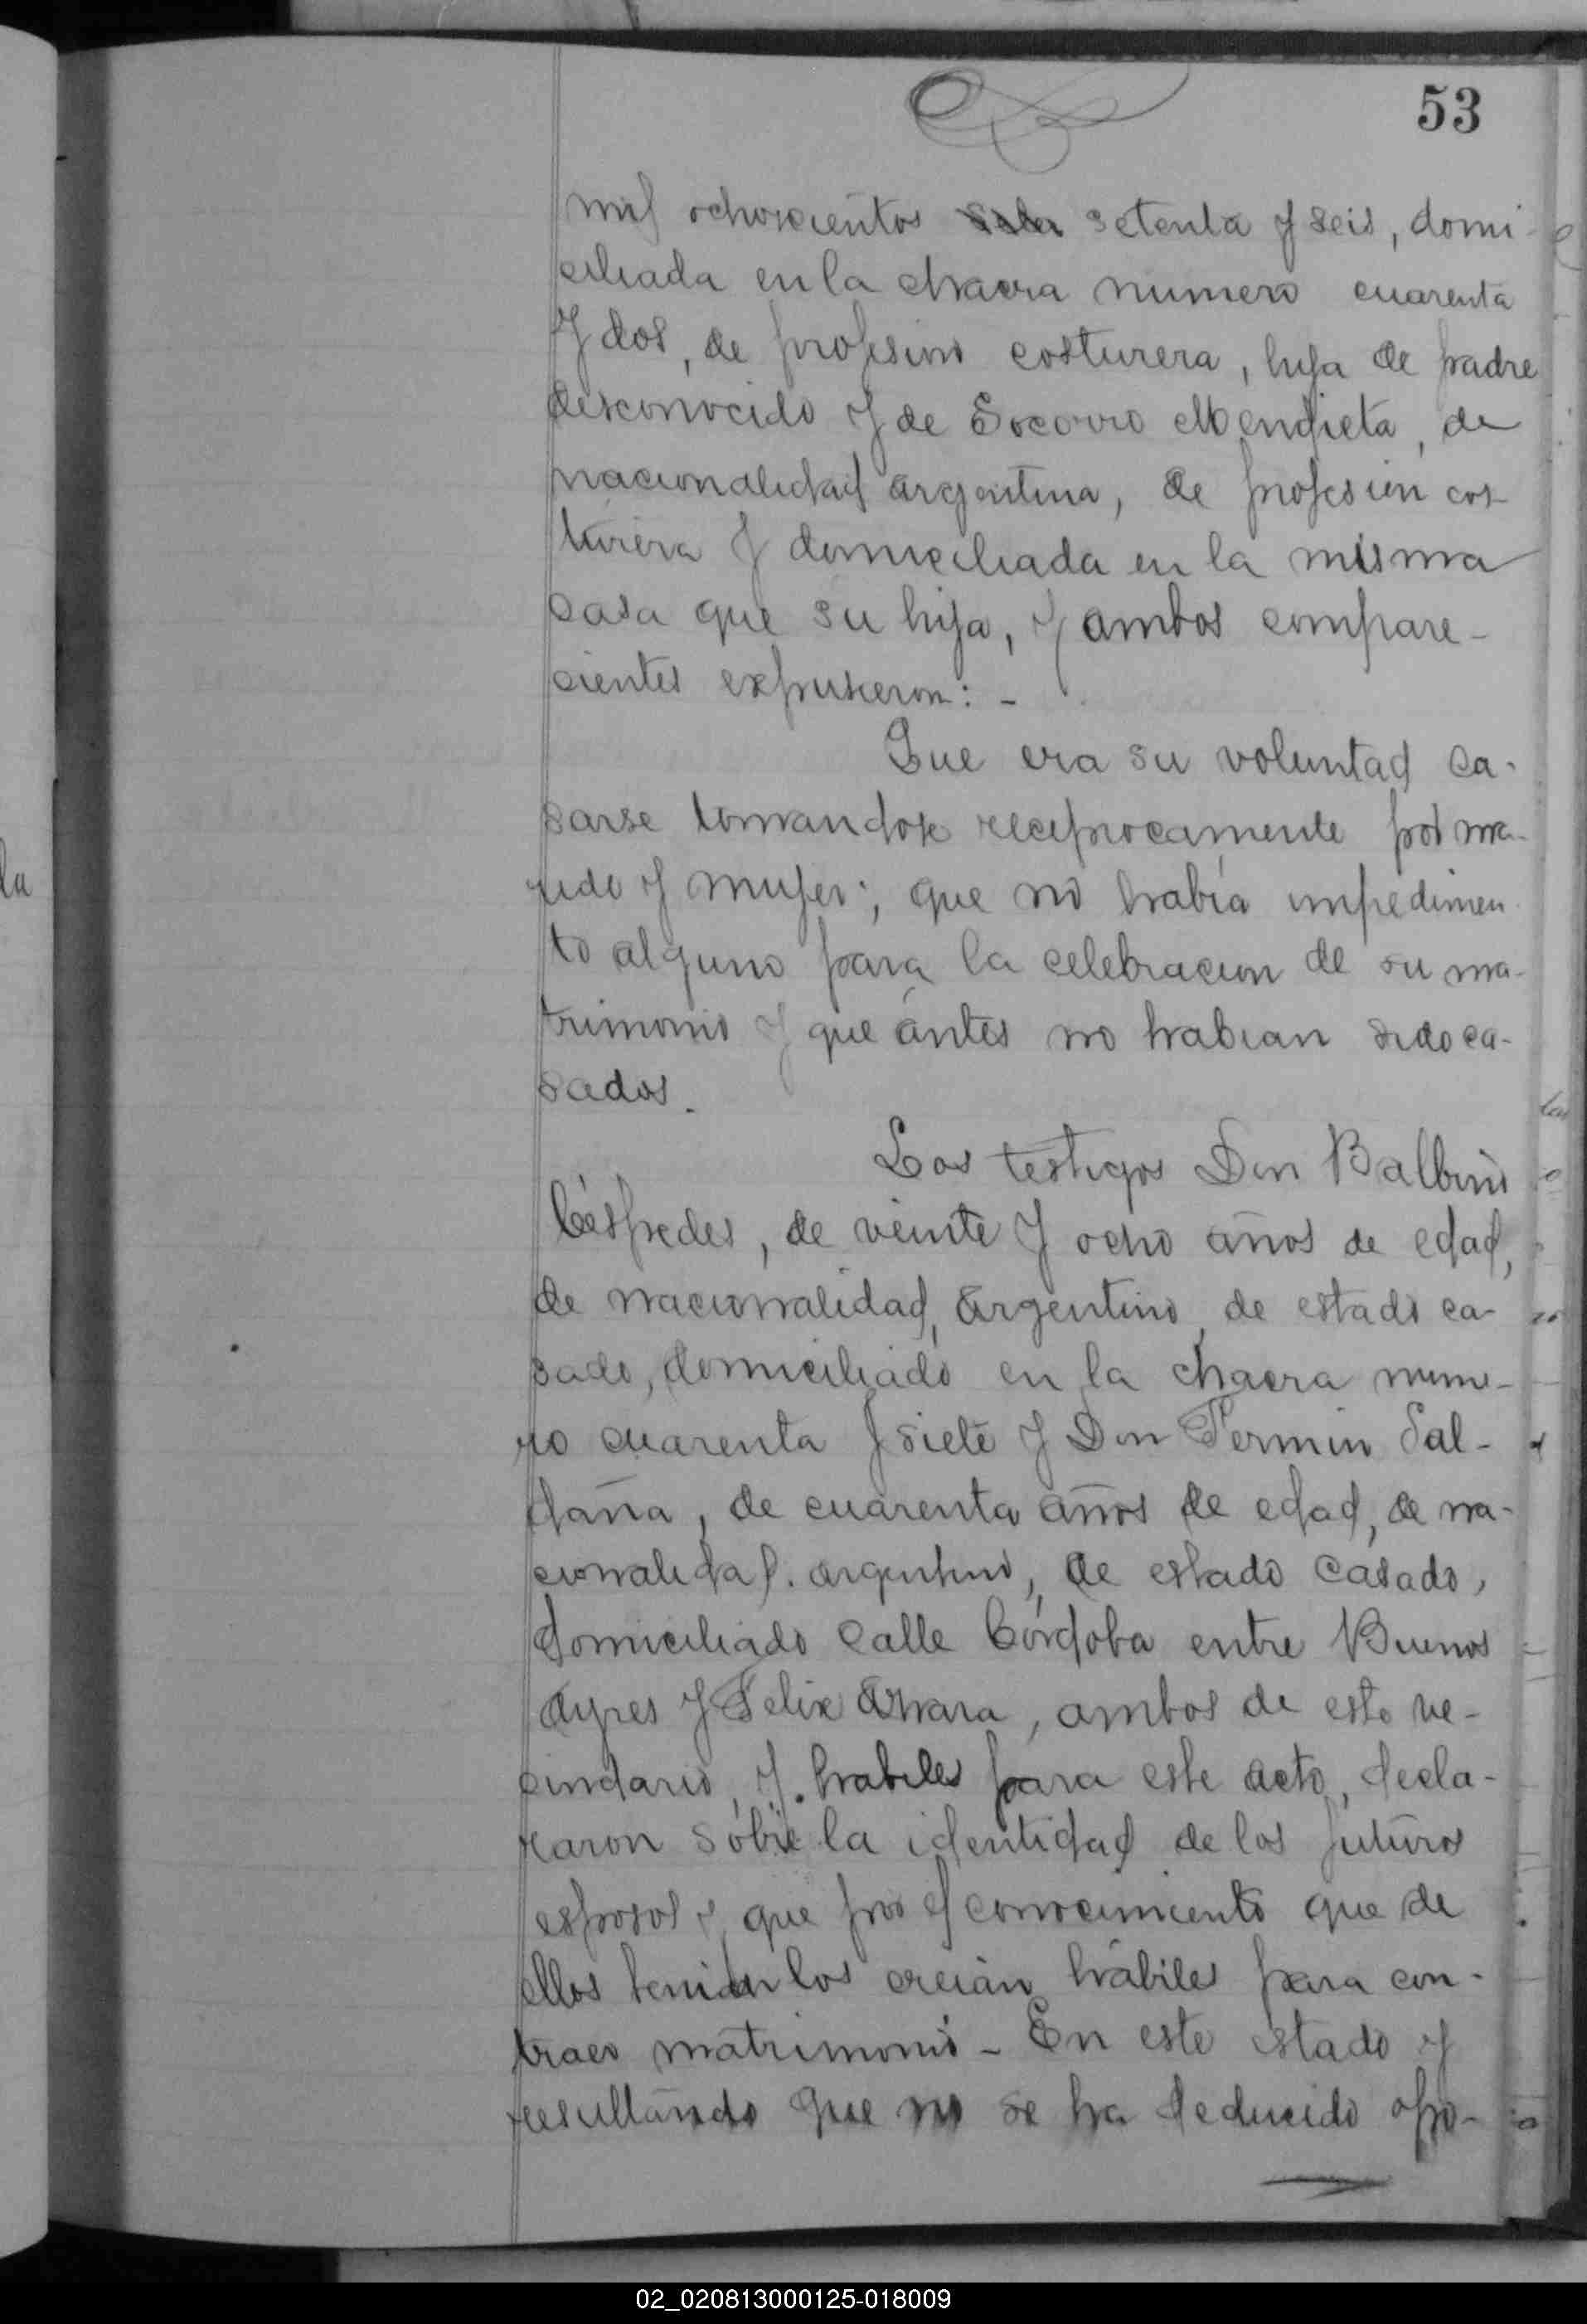 53
mil ochocientos setenta y seis, domi-
ciliada en la chacra numero cuarenta
y dos, de profesion costurera, hija de padre
desconocido y de Socorro Mendieta, de
nacionalidad argentina, de profesión cos-
turera y domiciliada en la misma
casa que su hija, y ambos compare-
cientes expusieron: -
Que era su voluntad ca-
sarse tomandose reciprocamente por ma-
rido y mujer; que no había impedimen-
to alguno para la celebracion de su ma-
trimonio y que ántes no habian sido ca-
sados.
Los testigos Don Balbino
Céspedes, de veinte y ocho años de edad,
de nacionalidad, argentino, de estado ca-
sado, domiciliado en la chacra nume-
ro cuarenta y siete y Don Fermin Sal-
daña, de cuarenta años de edad, de na-
cionalidad. argentino, de estado casado,
domiciliado calle Córdoba entre Buenos
Ayres y Felix Azara, ambos de este ve-
cindario, y habiles para este acto, decla-
raron sobre la identidad de los futuros
esposos y que por el conocimiento que de
ellos tenian los creian hábiles para con-
traer matrimonio - En este estado y
resultando que no se ha deducido opo-
02_020813000125-018009